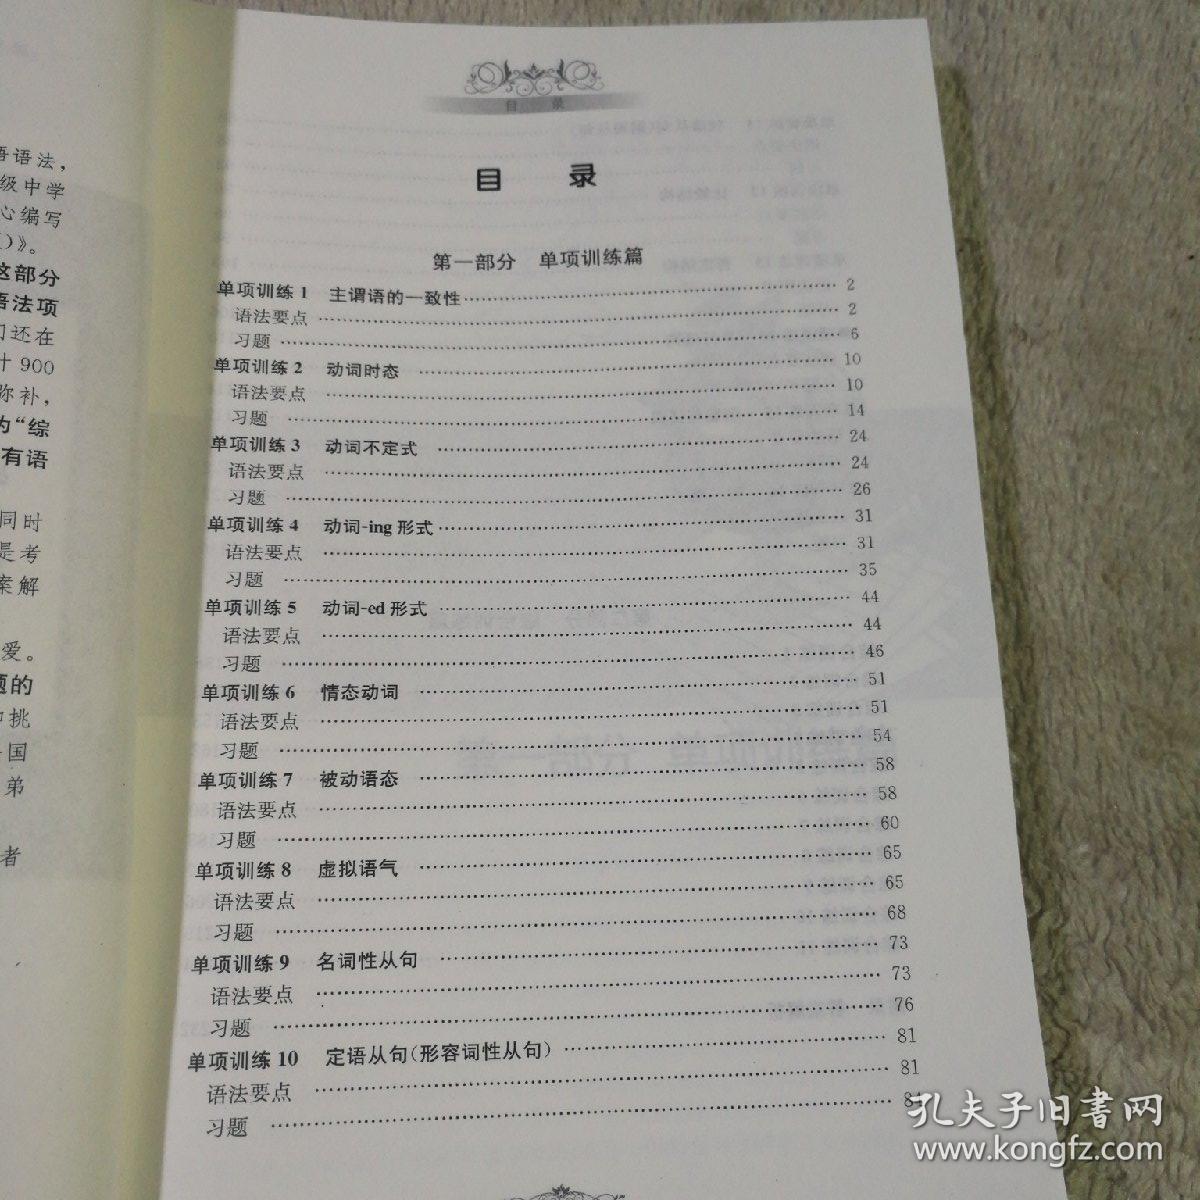 语语法,
级中学
心编写
)》。
这部分
语法项
们还在
计 900
弥补,
为“综
有语
同时
是考
案解
爱。
题的
中挑
国
弟
者
目 录
目 录
第一部分 单项训练篇
单项训练 1 主谓语的一致性 2
语法要点 2
习题 6
单项训练 2 动词时态 10
语法要点 10
习题 14
单项训练 3 动词不定式 24
语法要点 24
习题 26
单项训练 4 动词-ing 形式 31
语法要点 31
习题 35
单项训练 5 动词-ed 形式 44
语法要点 44
习题 46
单项训练 6 情态动词 51
语法要点 51
习题 54
单项训练 7 被动语态 58
语法要点 58
习题 60
单项训练 8 虚拟语气 65
语法要点 65
习题 68
单项训练 9 名词性从句 73
语法要点 73
习题 76
单项训练 10 定语从句(形容词性从句) 81
语法要点 81
习题 84
孔夫子旧书网
www.kongfz.com